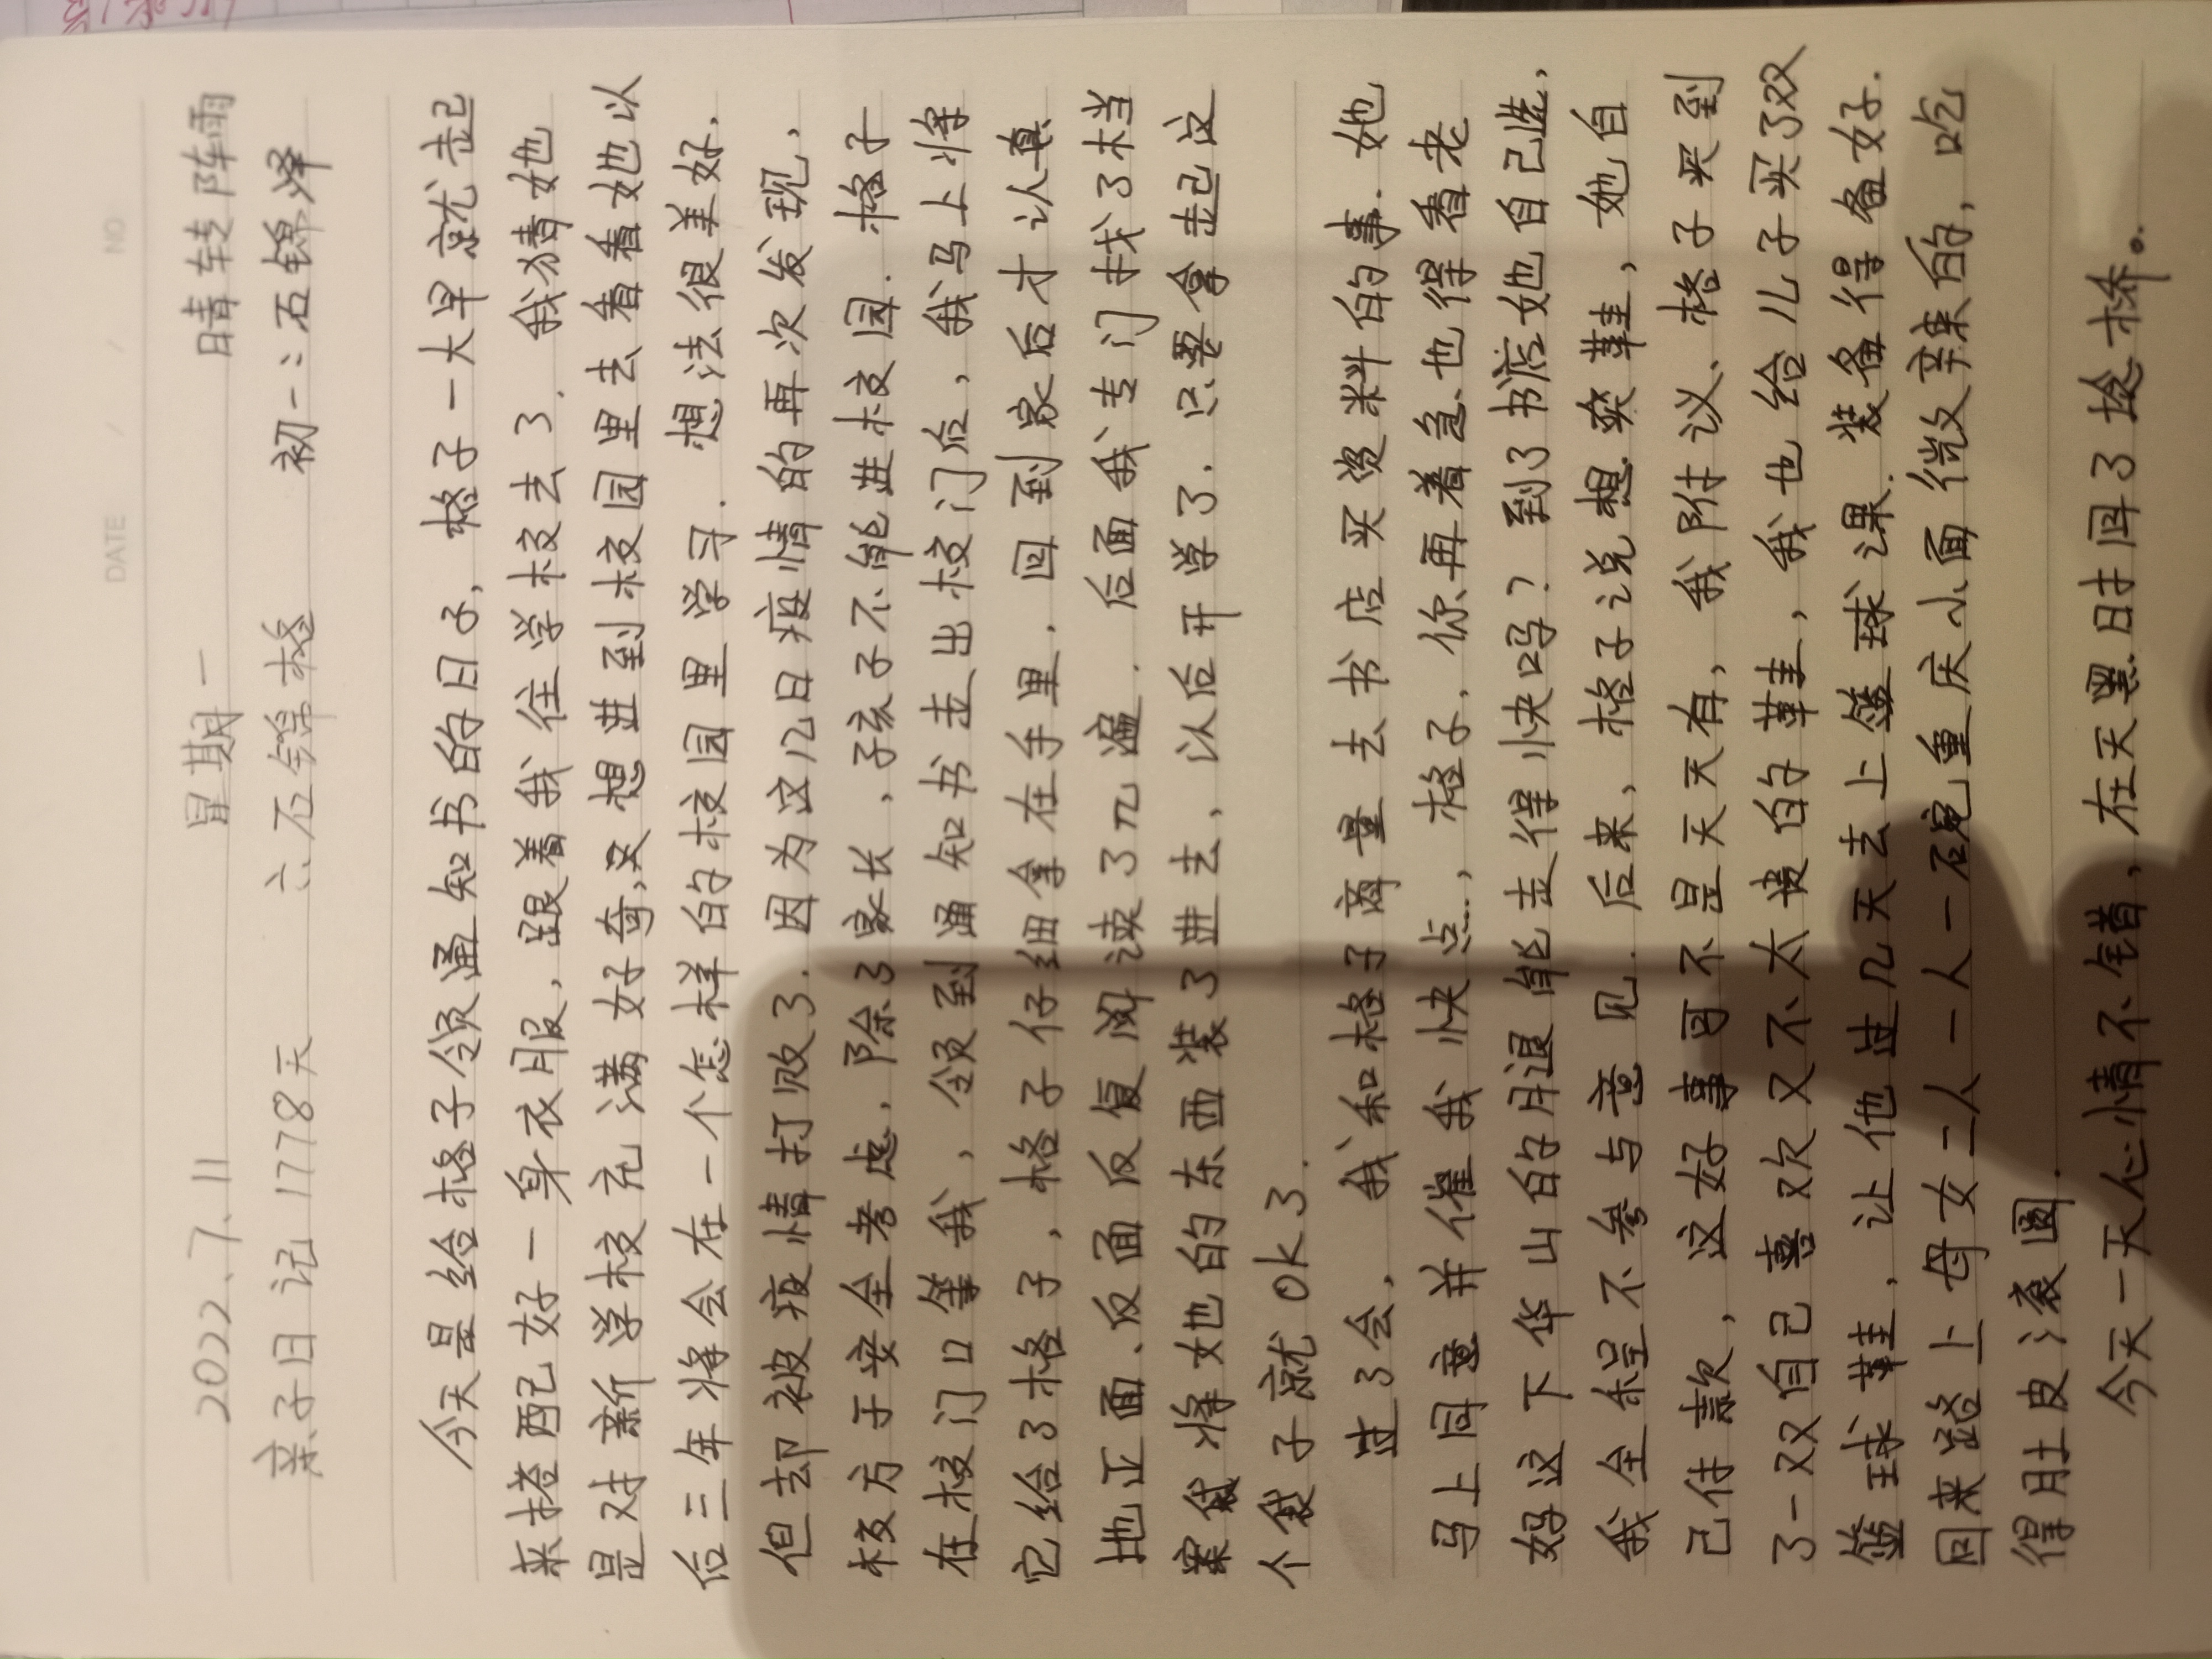 DATE / / NO
2022、7、11 星期一 晴转阵雨
亲子日记1778天 六:石锦格 初一:石锦泽
今天是给格子领通知书的日子，格子一大早就起
来搭配好一身衣服，跟着我往学校去了．我猜她
是对新学校充满好奇，又想进到校园里去看看她以
后三年将会在一个怎样的校园里学习．想法很美好，
但却被疫情打败了．因为这几日疫情的再次发现，
校方于安全考虑，除了家长，孩子不能进校园．格子
在校门口等我，领到通知书走出校门后，我马上将
它给了格子，格子仔细拿在手里．回到家后才认真
地正面、反面反复阅读了几遍．后面我专门找了档
案袋将她的东西装了进去，以后开学了．只要拿起这
个袋子就ok了．
过了会，我和格子商量去书店买资料的事．她
马上同意并催我快点，格子，你再着急也得看老
妈这下华山的腿能走得快吗？到了书店她自己选，
我全程不参与意见．后来，格子说想买鞋，她自
己付款，这好事可不是天天有，我附议、格子买到
了一双自己喜欢又不太贵的鞋，我也给儿子买了双
篮球鞋，让他过几天去上篮球课．装备得备好．
回来路上母女二人一人一碗重庆小面微辣的，吃
得肚皮滚圆．
今天一天心情不错，在天黑时回了趁桥。